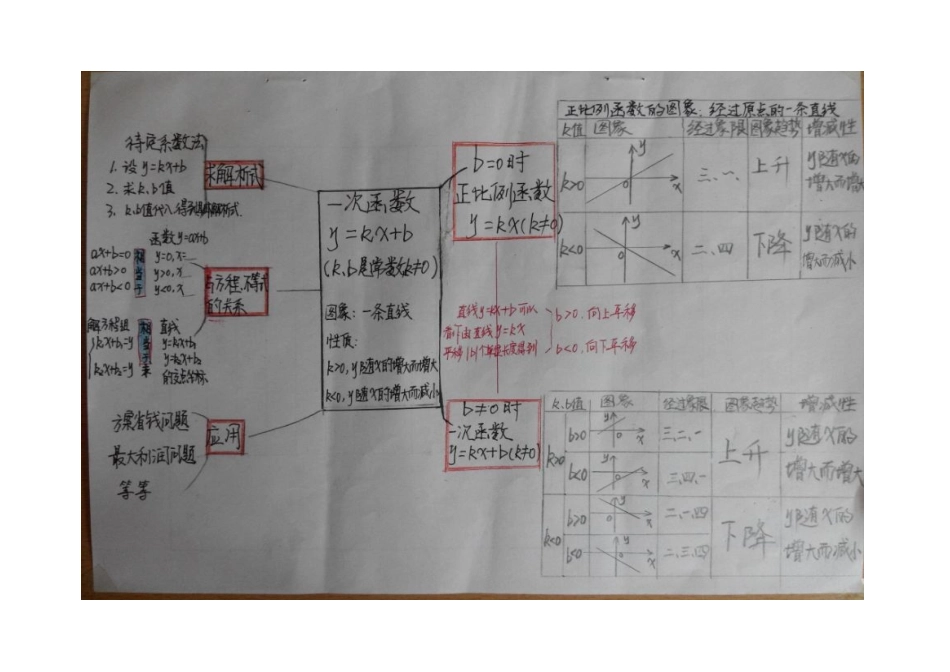 待定系数法
1. 设 y=kx+b
2. 求 k、b值
3、k、b值代入,得到解析式.
求解析式
函数 y=ax+b
ax+b=0 相 y=0,x=
ax+b>0 当 y>0,x
ax+b<0 于 y<0,x
与方程、不等式
的关系
解方程组 相 直线
k₁x+b₁=y 当 y=k₁x+b₁
于 y=k₂x+b₂
k₂x+b₂=y 求 的交点坐标
方案省钱问题
最大利润问题
等等
应用
一次函数
y=kx+b
(k、b是常数,k≠0)
图象:一条直线
性质:
k>0,y随x的增大而增大
k<0,y随x的增大而减小
b=0时
正比例函数
y=kx(k≠0)
直线y=kx+b可以
看作由直线y=kx
平移|b|个单位长度得到
b>0,向上平移
b<0,向下平移
b≠0时
一次函数
y=kx+b(k≠0)
正比例函数的图象:经过原点的一条直线
k值 图象 经过象限 图象趋势 增减性
k>0 y 0 x 三、一、 上升 y随x的
增大而增大
k<0 y 0 x 二、四 下降 y随x的
增大而减小
k、b值 图象 经过象限 图象趋势 增减性
k>0 b>0 y 0 x 三、二、一 上升 y随x的
b<0 y 0 x 三、四、一 增大而增大
k<0 b>0 y 0 x 二、一、四 下降 y随x的
b<0 y 0 x 二、三、四 增大而减小